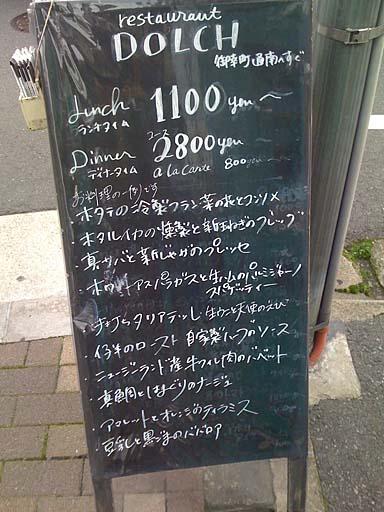 restaurant
DOLCH
御幸町通南へすぐ
Lunch 1100 yen 〜
ランチタイム
コース
Dinner 2800 yen
ディナータイム a la Carte 800 yen 〜
お料理の一例です
・ホタテの冷製フラン 菜の花とコンソメ
・ホタルイカの燻製と新玉ねぎのクレープ
・真サバと新じゃがのプレッセ
・ホワイトアスパラガスと生ハムのパルミジャーノ
スパゲッティー
・手打ちタリアテッレ 生ウニと天使のえび
・仔羊のロースト 自家製ハーブのソース
・ニュージーランド産牛フィレ肉のババット
・真鯛とはまぐりのナージュ
・アマレットとオレンジのティラミス
・豆乳と黒ごまのババロア